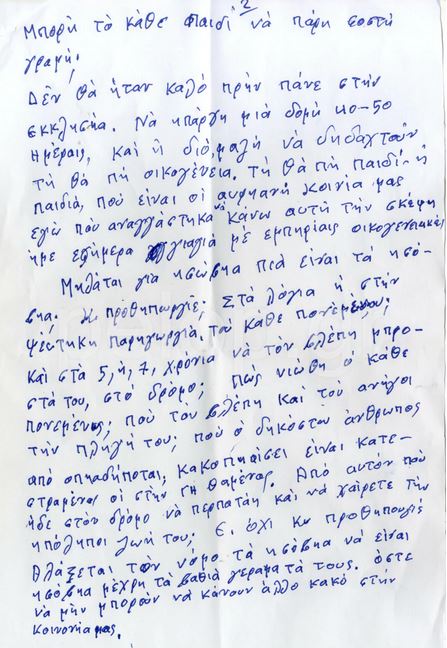 2
Μπορή τὸ κάθε παιδί νὰ πάρη σοστή
γραμή;
Δὲν θὰ ἤταν καλό πρὴν πάνε στὴν
εκκλησηα. Νὰ ηπάρχη μιὰ δομή 40-50
ημέραις, καὶ ἡ διό, μαζὴ νὰ διδαχτοῦν
τὴ θὰ πὴ οικογένεια. τὴ θὰ πὴ παιδί ἡ
παιδιὰ, ποὺ εἶναι οἱ αυρηανὴ κοινία μας
εγὼ ποὺ αναγγάστηκα νὰ κάνω αυτὴ τὴν σκέψη
ἡμε εφήμερα γιαγιὰ μὲ εμπηρίαις οικογενειακές
Μηλᾶται γιὰ ησόβηα πιὰ εἶναι τὰ ησό-
βηα. Κε προθηπωργὲ; Στὰ λόγια ἡ στὴν
ψεύτικη παρηγωριὰ. τοῦ κάθε πονεμένου;
Καὶ στὰ 5, ἡ, 7, χρόνια νὰ τὸν βλέπη μπρο-
στά του, στὸ δρόμο; Πῶς νιώθη ὁ κάθε
πονεμένος; ποὺ τὸν βλέπη καὶ τοῦ ανήγοι
τὴν πληγή του; ποὺ ὁ δηκόστου άνθρωπος
από οπηαδήποται, κακοπηαισει εἶναι κατε-
στραμένος οἱ στὴν ΓΗ θαμένος. Από αυτὸν ποὺ
ἡδε στὸν δρόμο νὰ περπατάη καὶ νὰ χαίρετε τὴν
ηπόληπι ζωή του; Ε. ὄχι Κε προθηπουργέ
Αλάξεται τὸν νόμο τὰ ησόβηα νὰ εἶναι
ησόβηα μέχρη τὰ βαθιὰ γεραματὰ τους. ὅστε
νὰ μὴν μποροῦν νὰ κάνουν ἄλλο κακό στὴν
Κοινονία μας.